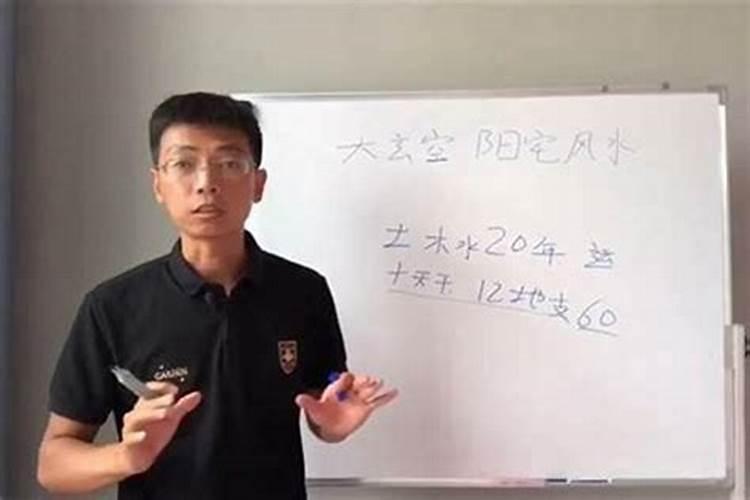 大玄空 阳宅风水
土木水20年 运
十天干 12地支60